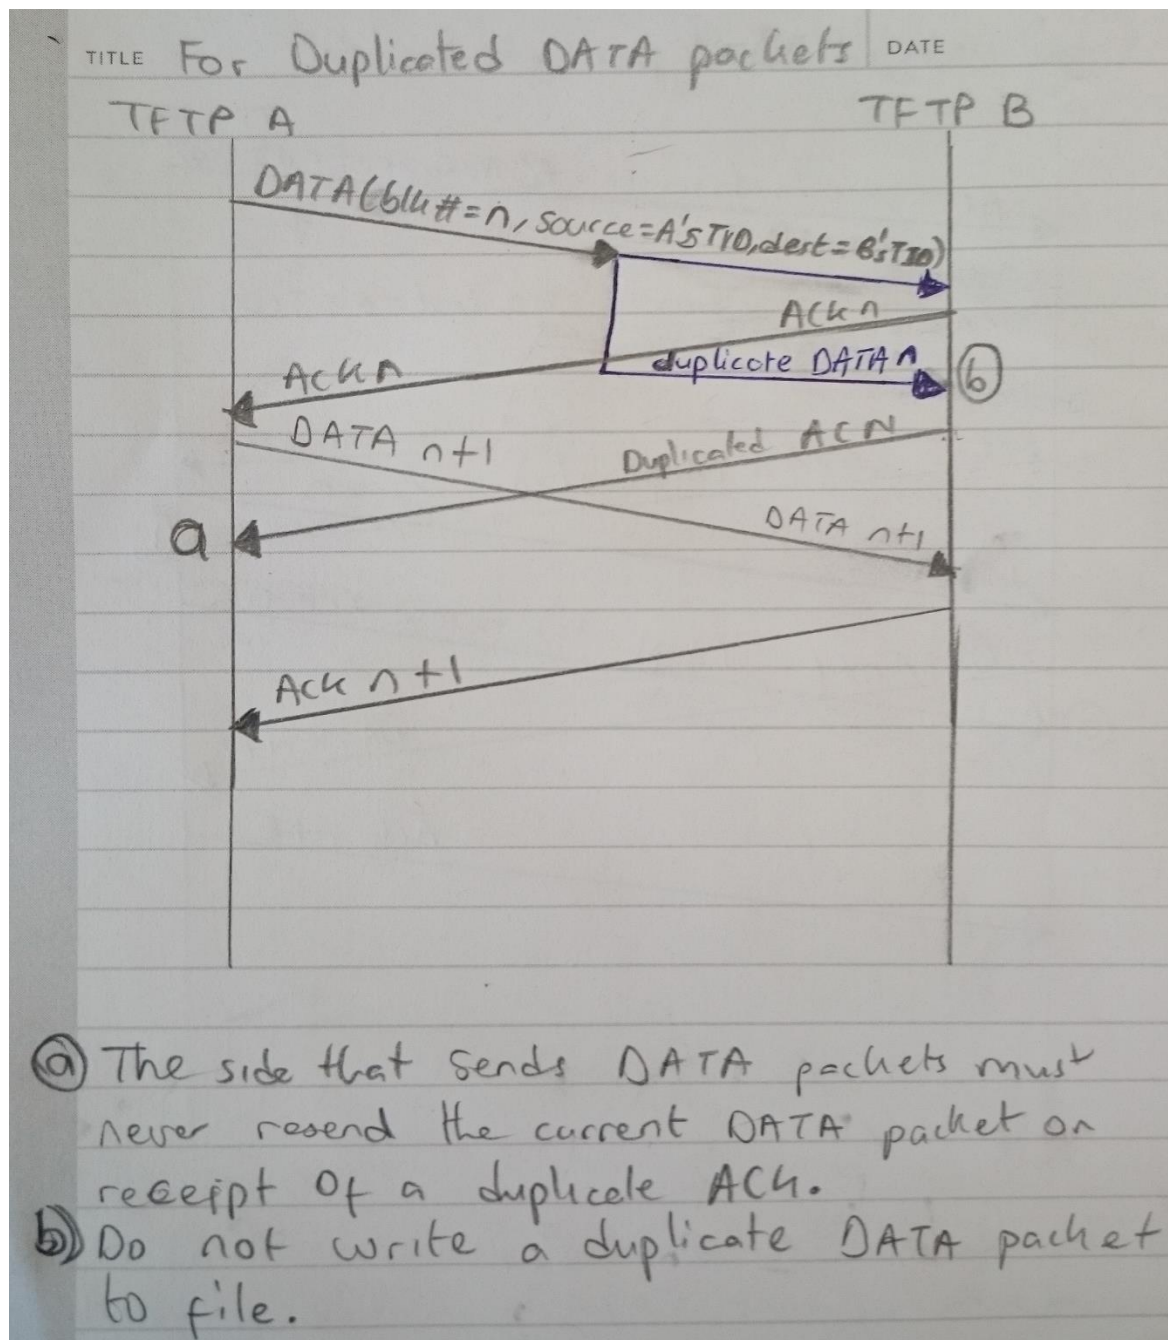 TITLE For Duplicated DATA packets DATE
TFTP A TFTP B
DATA(blk#=n, source=A's TID, dest=B's TID)
ACK n
duplicate DATA n (b)
ACK n
DATA n+1
Duplicated ACN
a
DATA n+1
ACK n+1
(a) The side that sends DATA packets must
never resend the current DATA packet on
receipt of a duplicate ACK.
b) Do not write a duplicate DATA packet
to file.